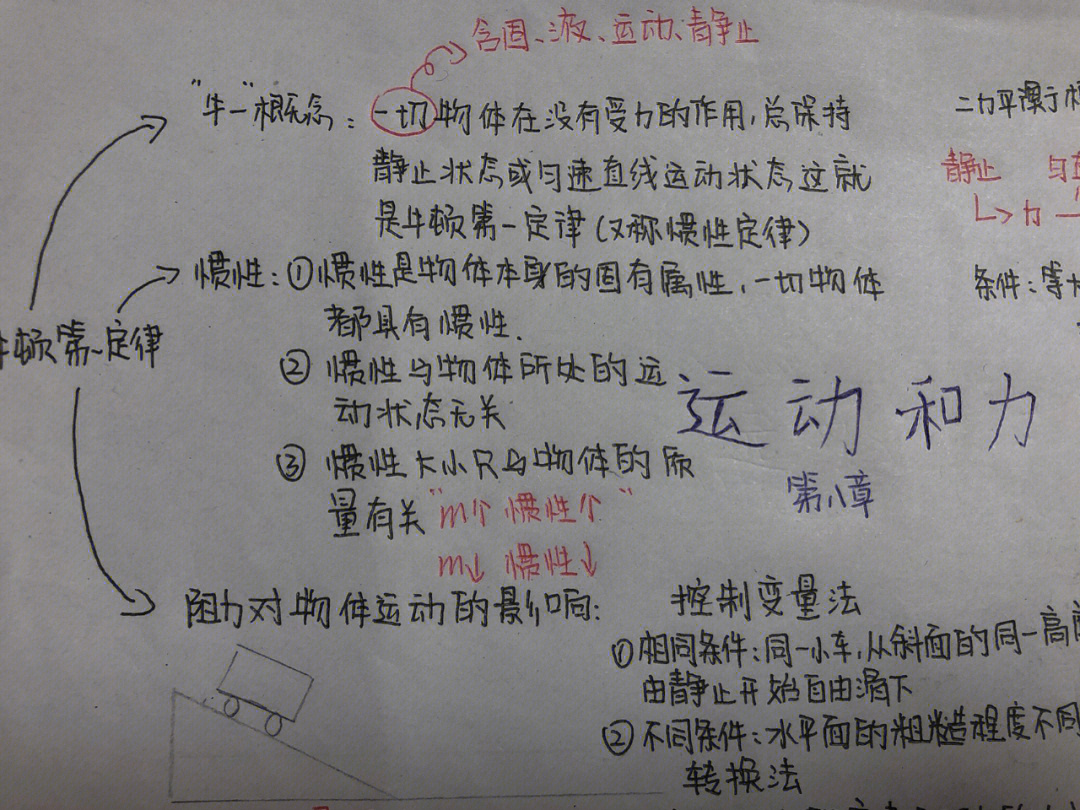 含固、液、运动、静止
"牛一"概念：一切物体在没有受力的作用,总保持
静止状态或匀速直线运动状态这就
是牛顿第一定律(又称惯性定律)
惯性：①惯性是物体本身的固有属性,一切物体
都具有惯性.
②惯性与物体所处的运
动状态无关
③惯性大小只与物体的质
量有关"m个 惯性个"
m↓ 惯性↓
牛顿第一定律
阻力对物体运动的影响：
二力平衡
静止
↳力
条件：等
运动和力
第八章
控制变量法
①相同条件：同一小车,从斜面的同一高
由静止开始自由滑下
②不同条件：水平面的粗糙程度不同
转换法